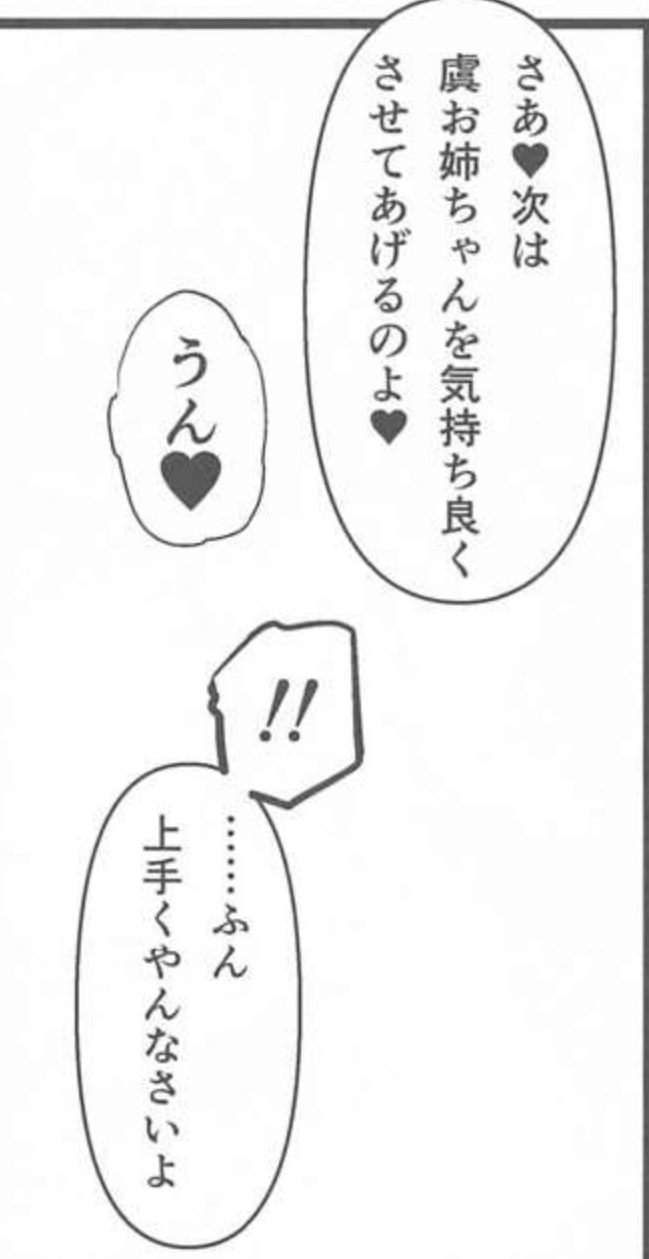 さあ♥次は
虞お姉ちゃんを気持ち良く
させてあげるのよ♥
うん♥
!!
……ふん
上手くやんなさいよ